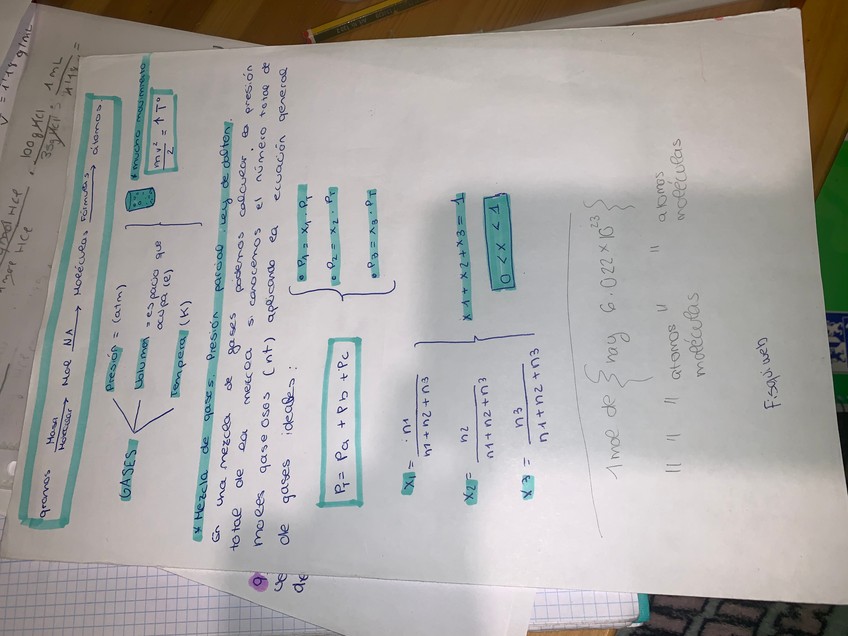 gramos Masa Molecular → Mol NA → Moléculas Fórmulas → átomos.
GASES
Presión = (atm)
Volumen = espacio que ocupa (l)
Tempera (K)
* mucho movimiento
mv²/2 = ↑ Tº
* Mezcla de gases. Presión parcial. Ley de dalton.
En una mezcla de gases podemos calcular la presión
total de la mezcla si conocemos el número total de
moles gaseosos (nt) aplicando la ecuación general
de gases ideales:
PT = Pa + Pb + Pc
• P1 = x1 · PT
• P2 = x2 · PT
• P3 = x3 · PT
x1 = n1 / n1 + n2 + n3
x2 = n2 / n1 + n2 + n3
x3 = n3 / n1 + n2 + n3
x1 + x2 + x3 = 1
0 < x < 1
1 mol de { hay 6.022 x 10²³ }
" " " átomos " " átomos
moléculas moléculas
Fisquiweb